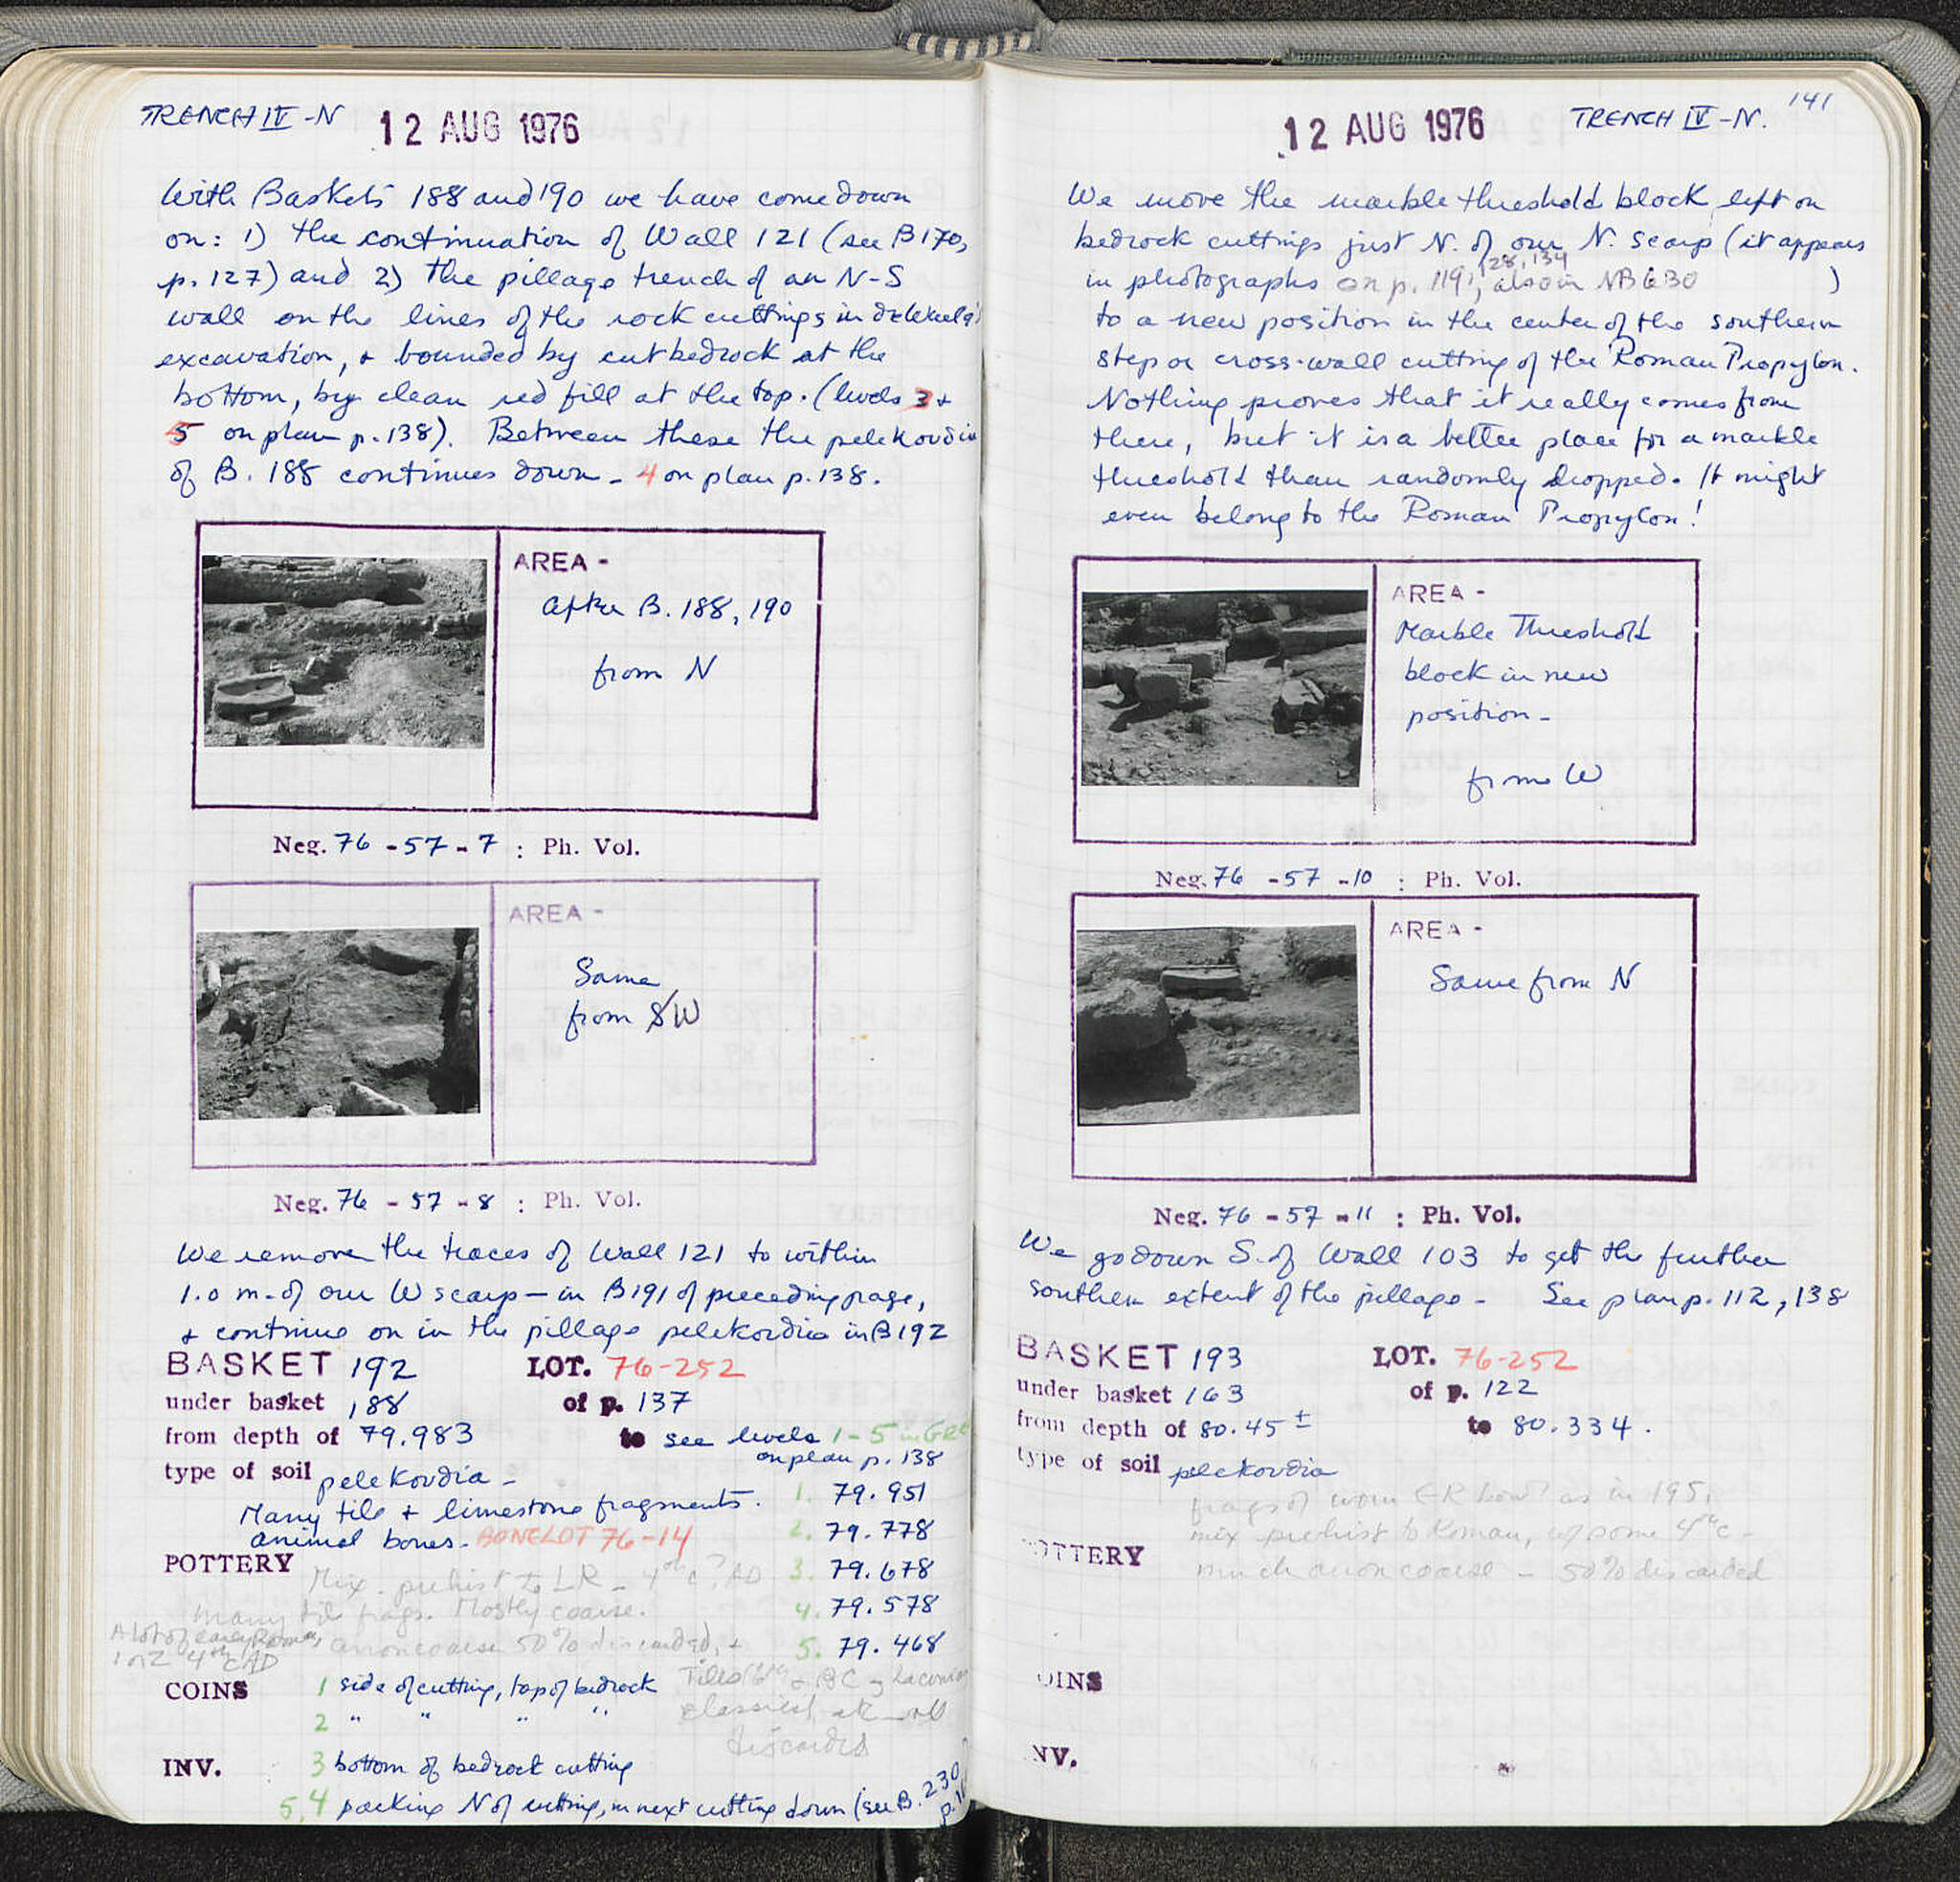 TRENCH IV - N
12 AUG 1976
With Baskets 188 and 190 we have come down
on: 1) the continuation of Wall 121 (see B170,
p. 127) and 2) the pillage trench of an N-S
wall on the lines of the rock cuttings in
excavation, + bounded by cut bedrock at the
bottom, by clean red fill at the top. (levels 3 +
5 on plan p. 138). Between these the pelekoudia
of B. 188 continues down - 4 on plan p. 138.
AREA -
after B. 188, 190
from N
Neg. 76 - 57 - 7 : Ph. Vol.
AREA -
Same
from W
Neg. 76 - 57 - 8 : Ph. Vol.
We remove the traces of Wall 121 to within
1.0 m. of our W scarp - in B191 of preceding page,
+ continue on in the pillage pelekoudia in B192
BASKET 192 LOT. 76-252
under basket 188 of p. 137
from depth of 79.983 to see levels 1-5 in
on plan p. 138
type of soil pelekoudia -
Many tile + limestone fragments.
animal bones - BONE LOT 76-14
1. 79.951
2. 79.778
3. 79.678
4. 79.578
5. 79.468
POTTERY Mix - prehist to LR - 4th c? AD
many tile frags. Mostly coarse.
A lot of early Roman,
1 or 2 4th c AD
anon coarse 50% discarded, +
Tiles
classical,
discarded
COINS 1 side of cutting, top of bedrock
2 " " " "
INV. 3 bottom of bedrock cutting
5, 4 packing N of cutting, in next cutting down (see B. 230
141
12 AUG 1976
TRENCH IV - N.
We move the marble threshold block, left on
bedrock cuttings just N. of our N. scarp (it appears
in photographs on p. 119, 128, 134, also in NB 630 )
to a new position in the center of the southern
step or cross-wall cutting of the Roman Propylon.
Nothing proves that it really comes from
there, but it is a better place for a marble
threshold than randomly dropped. It might
even belong to the Roman Propylon!
AREA -
Marble Threshold
block in new
position -
from W
Neg. 76 - 57 - 10 : Ph. Vol.
AREA -
Same from N
Neg. 76 - 57 - 11 : Ph. Vol.
We go down S. of Wall 103 to get the further
southern extent of the pillage - See plan p. 112, 138
BASKET 193 LOT. 76-252
under basket 163 of p. 122
from depth of 80.45 ± to 80.334.
type of soil pelekoudia
frags of worn ER bowl as in 195,
mix prehist to Roman, w/ some 4th c -
POTTERY much anon coarse - 50% discarded
OINS
NV.